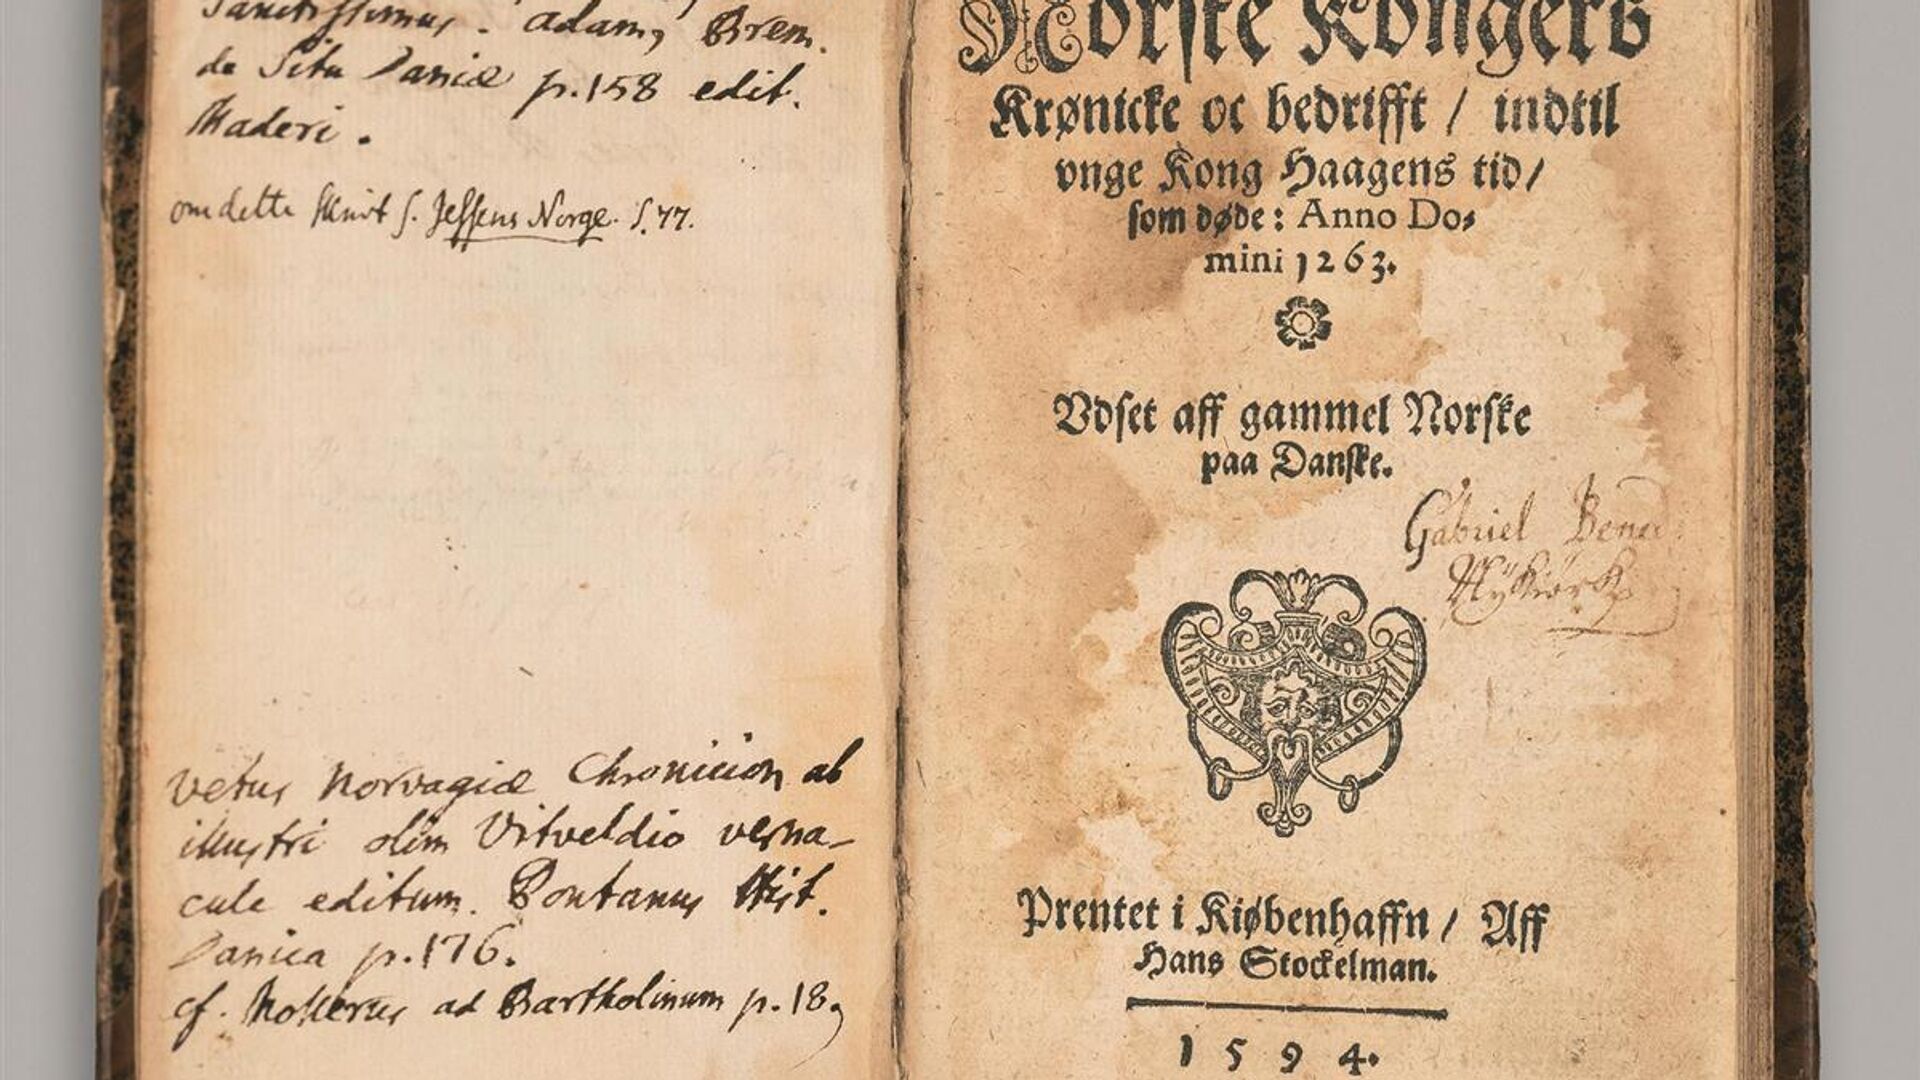 Sanctissimus. Adamus Brem.
de Situ Daniæ p. 158 edit.
Maderi.
om dette Skrivt s. Jessens Norge. S. 77.
Vetus Norvagiæ Chronicion ab
illustri olim Vitveldio verna-
cule editum. Pontanus Hist.
Danica p. 176.
cf. Mollerus ad Bartholinum p. 18
Norske Kongers
Krønicke oc bedrifft / indtil
vnge Kong Haagens tid /
som døde: Anno Do-
mini 1263.
Vdset aff gammel Norske
paa Danske.
Gabriel
Prentet i Kiøbenhaffn / Aff
Hans Stockelman.
1594.